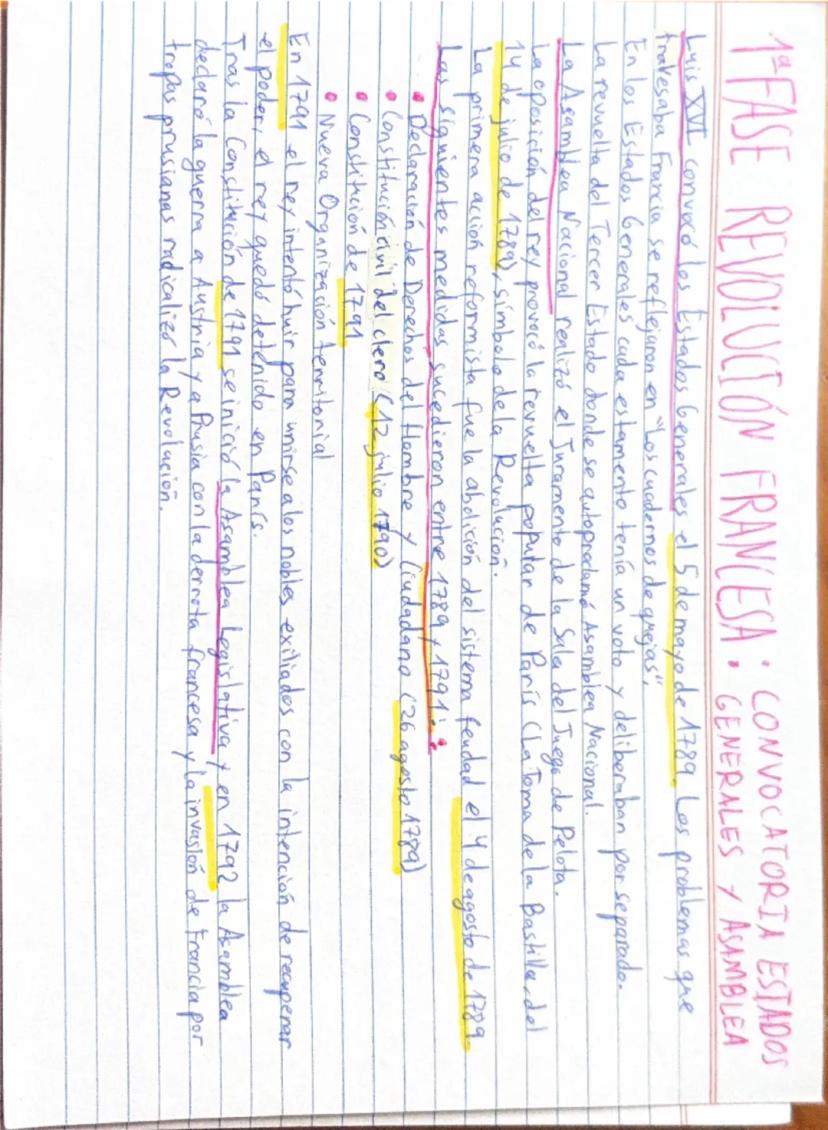 1ª FASE REVOLUCIÓN FRANCESA: CONVOCATORIA ESTADOS
GENERALES Y ASAMBLEA
Luis XVI convocó los Estados Generales el 5 de mayo de 1789. Los problemas que
travesaba Francia se reflejaron en "Los cuadernos de quejas".
En los Estados Generales cada estamento tenía un voto y deliberaban por separado.
La revuelta del Tercer Estado donde se autoproclamó Asamblea Nacional.
La Asamblea Nacional realizó el Juramento de la Sala del Juego de Pelota.
La oposición del rey provocó la revuelta popular de París (La Toma de la Bastilla, del
14 de julio de 1789), símbolo de la Revolución.
La primera acción reformista fue la abolición del sistema feudal el 4 de agosto de 1789.
Las siguientes medidas sucedieron entre 1789 y 1791:
• Declaración de Derechos del Hombre y Ciudadano (26 agosto 1789)
• Constitución civil del clero (12 julio 1790)
• Constitución de 1791
• Nueva Organización territorial
En 1791 el rey intentó huir para unirse a los nobles exiliados con la intención de recuperar
el poder, el rey quedó detenido en París.
Tras la Constitución de 1791 se inició la Asamblea Legislativa y en 1792 la Asamblea
declaró la guerra a Austria y a Prusia con la derrota francesa y la invasión de Francia por
tropas prusianas radicalizó la Revolución.